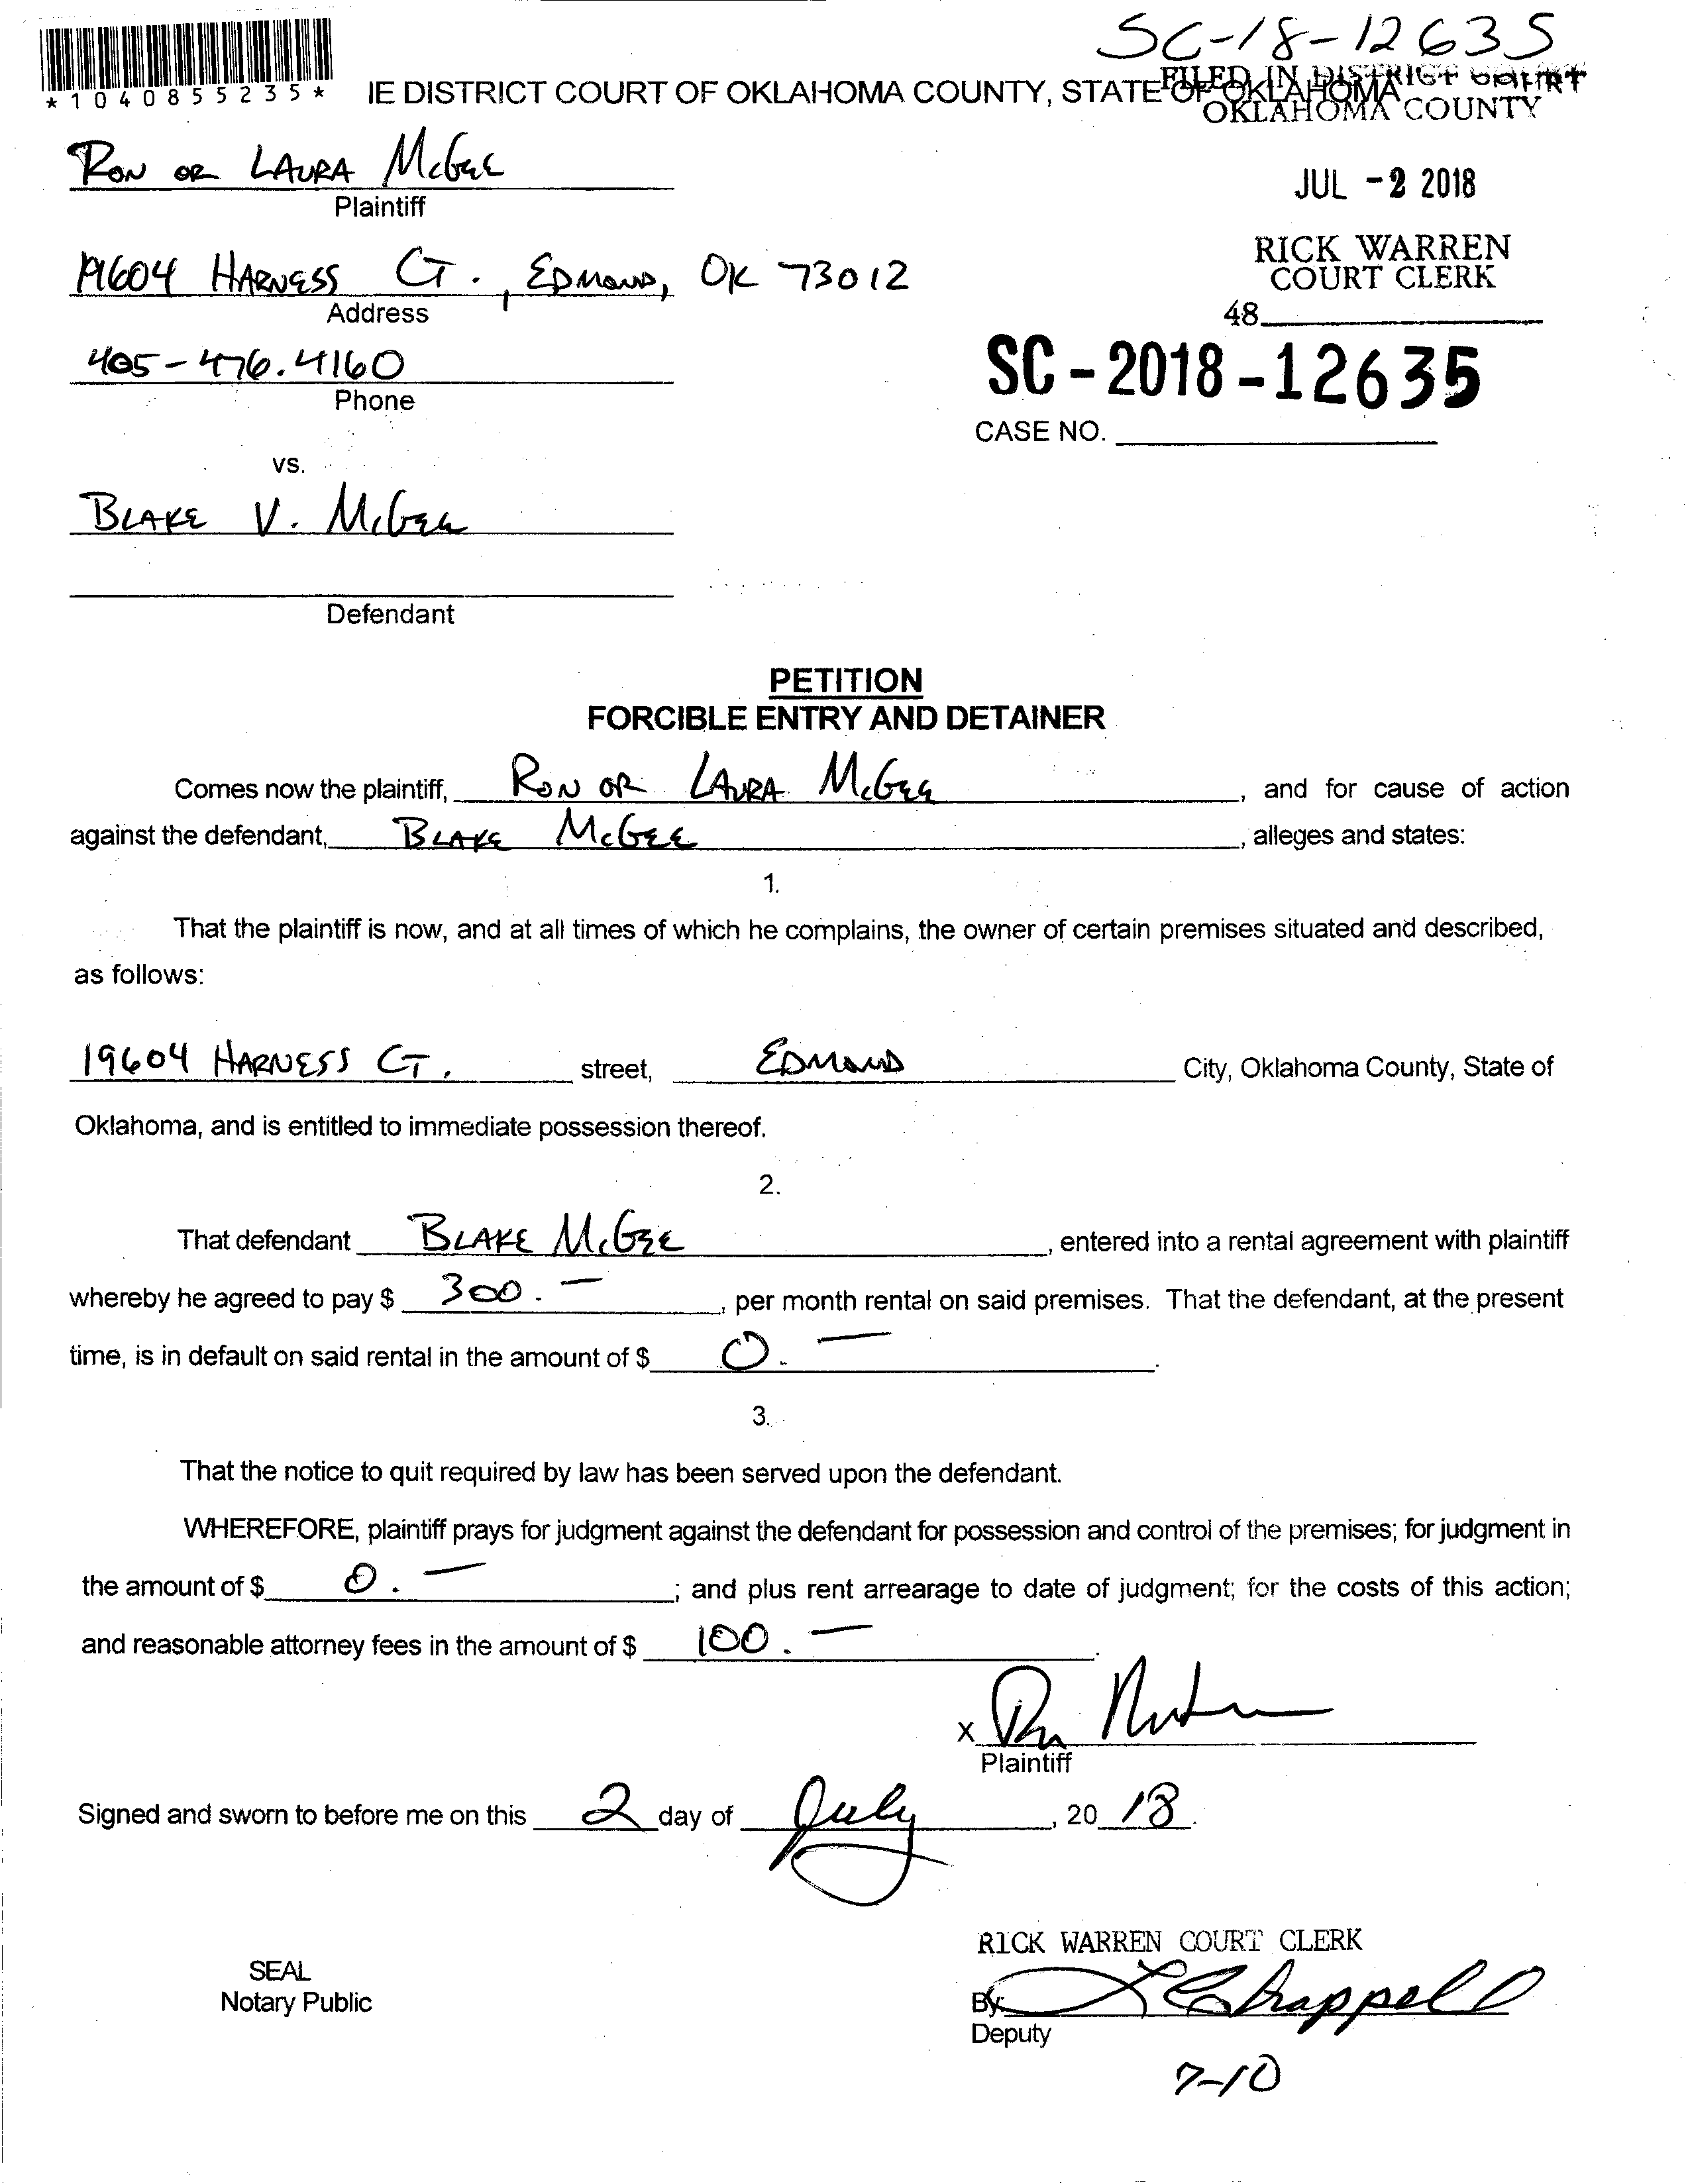 SC-18-12635
*1040855235*
IE DISTRICT COURT OF OKLAHOMA COUNTY, STATE OF OKLAHOMA
FILED IN DISTRICT COURT
OKLAHOMA COUNTY
RON OR LAURA McGEE
Plaintiff
JUL -2 2018
RICK WARREN
COURT CLERK
19604 HARNESS CT., EDMOND, OK 73012
Address
48
405-476.4160
Phone
SC-2018-12635
CASE NO.
vs.
BLAKE V. McGEE
Defendant
PETITION
FORCIBLE ENTRY AND DETAINER
Comes now the plaintiff, RON OR LAURA McGEE, and for cause of action
against the defendant, BLAKE McGEE, alleges and states:
1.
That the plaintiff is now, and at all times of which he complains, the owner of certain premises situated and described,
as follows:
19604 HARNESS CT. street, EDMOND City, Oklahoma County, State of
Oklahoma, and is entitled to immediate possession thereof.
2.
That defendant BLAKE McGEE, entered into a rental agreement with plaintiff
whereby he agreed to pay $ 300.—, per month rental on said premises. That the defendant, at the present
time, is in default on said rental in the amount of $ 0.—.
3.
That the notice to quit required by law has been served upon the defendant.
WHEREFORE, plaintiff prays for judgment against the defendant for possession and control of the premises; for judgment in
the amount of $ 0.—; and plus rent arrearage to date of judgment; for the costs of this action;
and reasonable attorney fees in the amount of $ 100.—.
X
Plaintiff
Signed and sworn to before me on this 2 day of July, 2018.
RICK WARREN COURT CLERK
SEAL
Notary Public
By: Chappell
Deputy
7-10